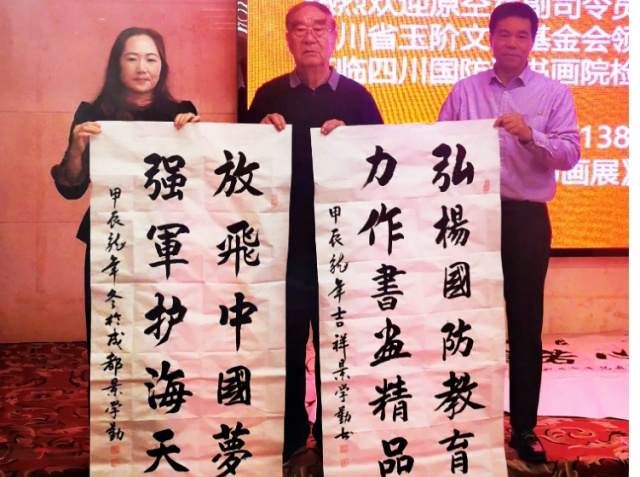 烈欢迎原空
副司令员
川省玉阶文
基金会领
临四川国防
书画院检
138
画展》
弘楊國防教育
力作書画精品
甲辰龍年吉祥景学勤书
放飛中國夢
强軍护海天
甲辰龍年冬於成都景学勤